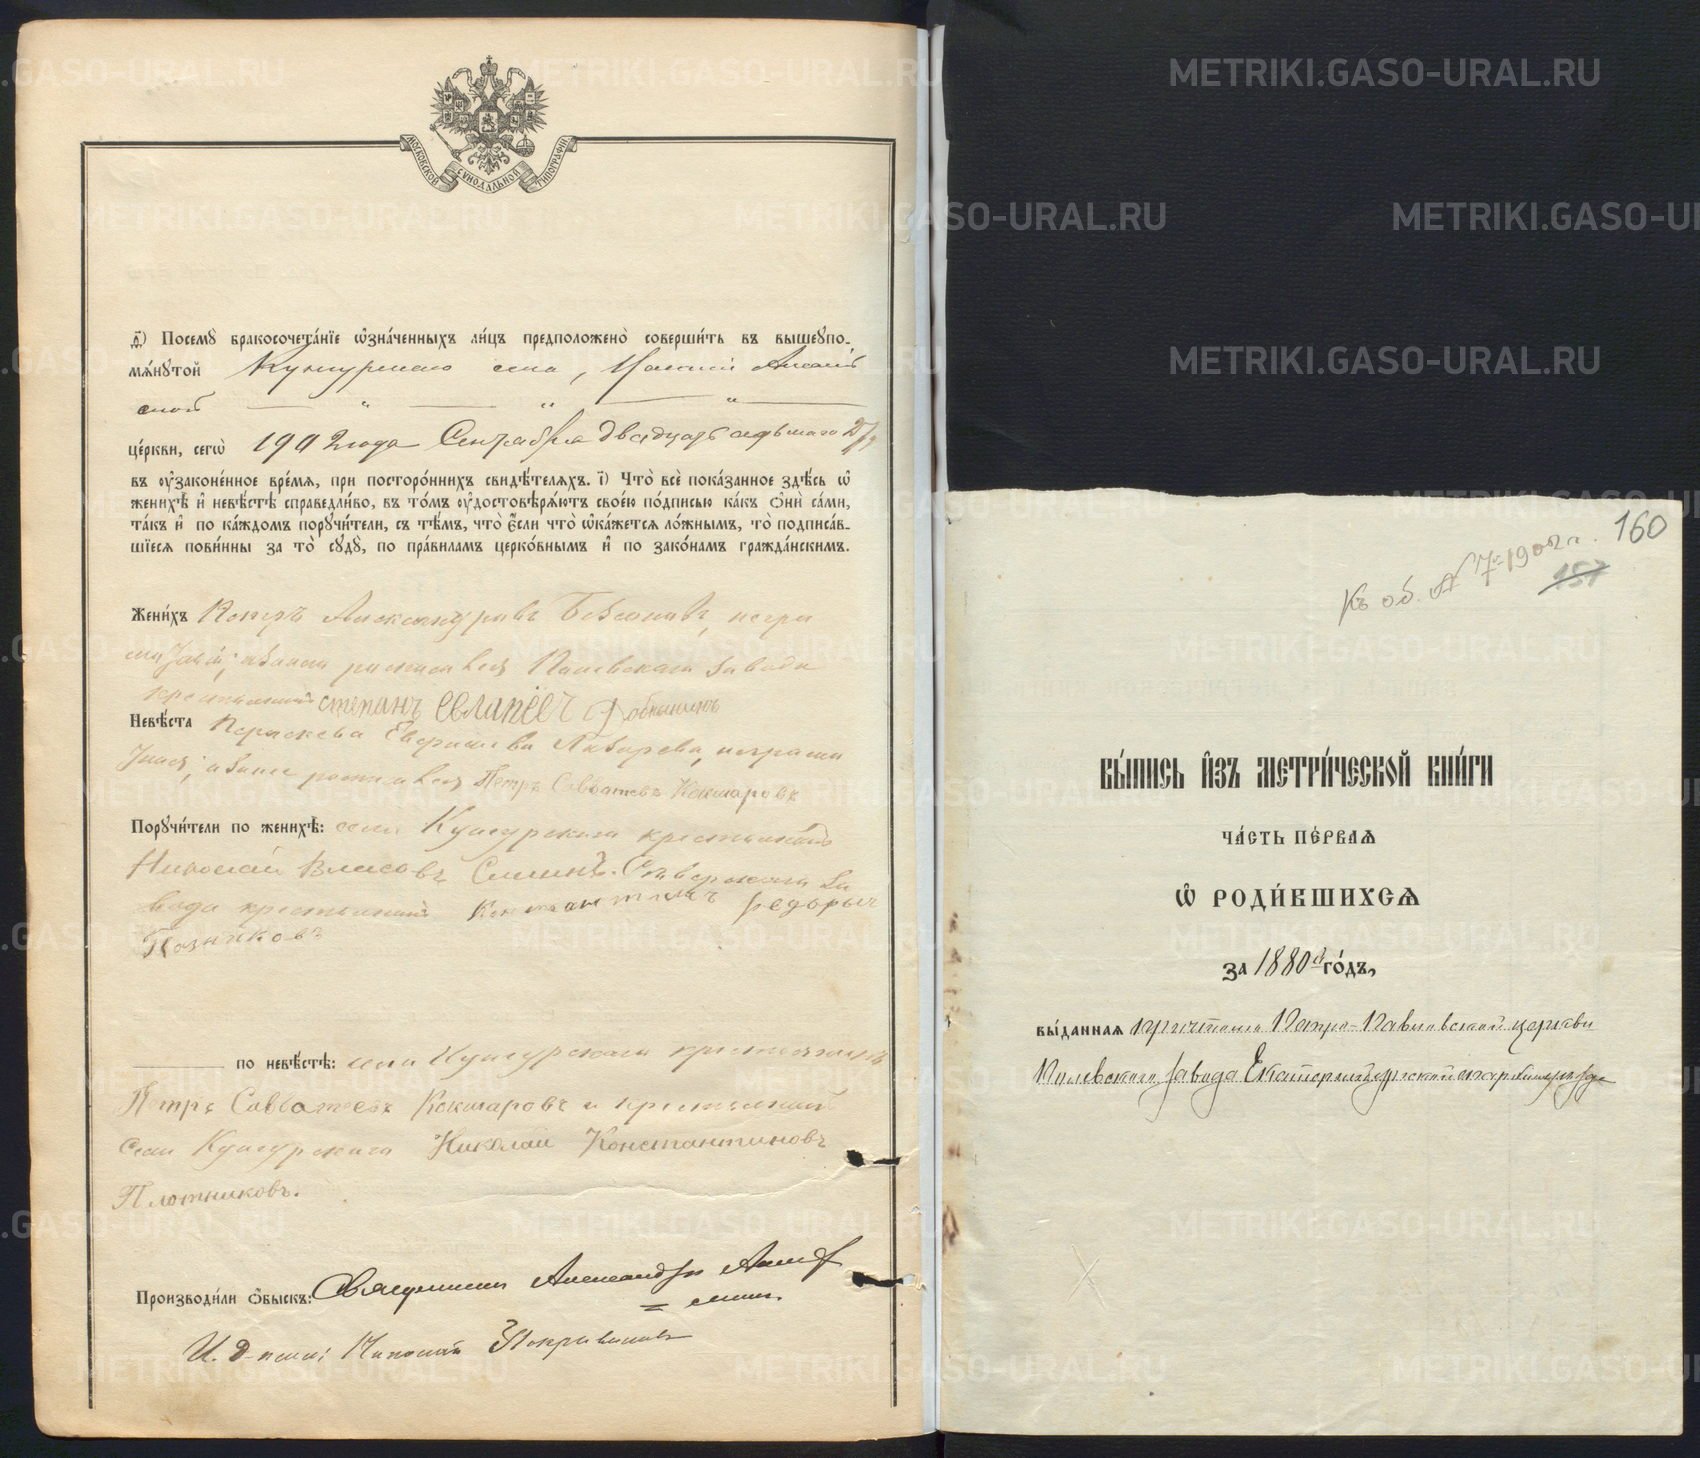 МОСКОВСКОЙ СѴНОДАЛЬНОЙ ТИПОГРАФІИ
д҃) Посемꙋ̀ бракосочета́нїе ѡ҆зна́ченныхъ ли́цъ предположено̀ соверши́ть въ вышеꙋпо-
мѧ́нꙋтой Кунгурскаго села,
ской
це́ркви, сегѡ̀ 1902 года Сентября двадцать седьмаго 27
въ ᲂу҆зако́ненное вре́мѧ, при посторо́ннихъ свидѣ́телѧхъ. і҃) Что̀ всѐ пока́занное здѣ́сь ѡ҆
женихѣ̀ и҆ невѣ́стѣ справедли́во, въ то́мъ ᲂу҆достовѣрѧ́ютъ свое́ю по́дписью ка́къ ѻ҆нѝ са́ми,
та́къ и҆ по ка́ждомъ порꙋчи́тели, съ тѣ́мъ, что̀ є҆́сли что̀ ѡ҆ка́жетсѧ ло́жнымъ, то̀ подписа́в-
шїесѧ пови́нны за то̀ сꙋдꙋ̀, по пра́виламъ церко́внымъ и҆ по зако́намъ гражда́нскимъ.
Жени́хъ Петръ Александровъ, негра
мотный; за него росписался Полевскаго завода
крестьянинъ степанъ Евлапіевъ
Невѣ́ста Параскева Лазарева, неграмо
тная; а за нее росписался Петръ Савватеевъ Кокшаровъ
Порꙋчи́тели по женихѣ̀: села Кунгурскаго крестьянинъ
Николай Власовъ Сѣверскаго за
вода крестьянинъ Константинъ Федорычъ
по невѣ́стѣ: села Кунгурскаго крестьянинъ
Петръ Савватеевъ Кокшаровъ и крестьянинъ
Села Кунгурскаго Николай Константиновъ
Плотниковъ.
Производи́ли ѻ҆́быскъ: Священникъ Александръ
И. д. псал. Николай
160
Къ об. № 7 1902 г.
157
ВЫ́ПИСЬ И҆ЗЪ МЕТРИ́ЧЕСКОЙ КНИ́ГИ
ЧА́СТЬ ПЕ́РВАѦ
Ѡ҆ РОДИ́ВШИХСѦ
ЗА 1880й ГО́ДЪ,
вы́даннаѧ причтомъ Петро-Павловской церкви
Полевскаго завода Екатеринбургской епархіи
METRIKI.GASO-URAL.RU